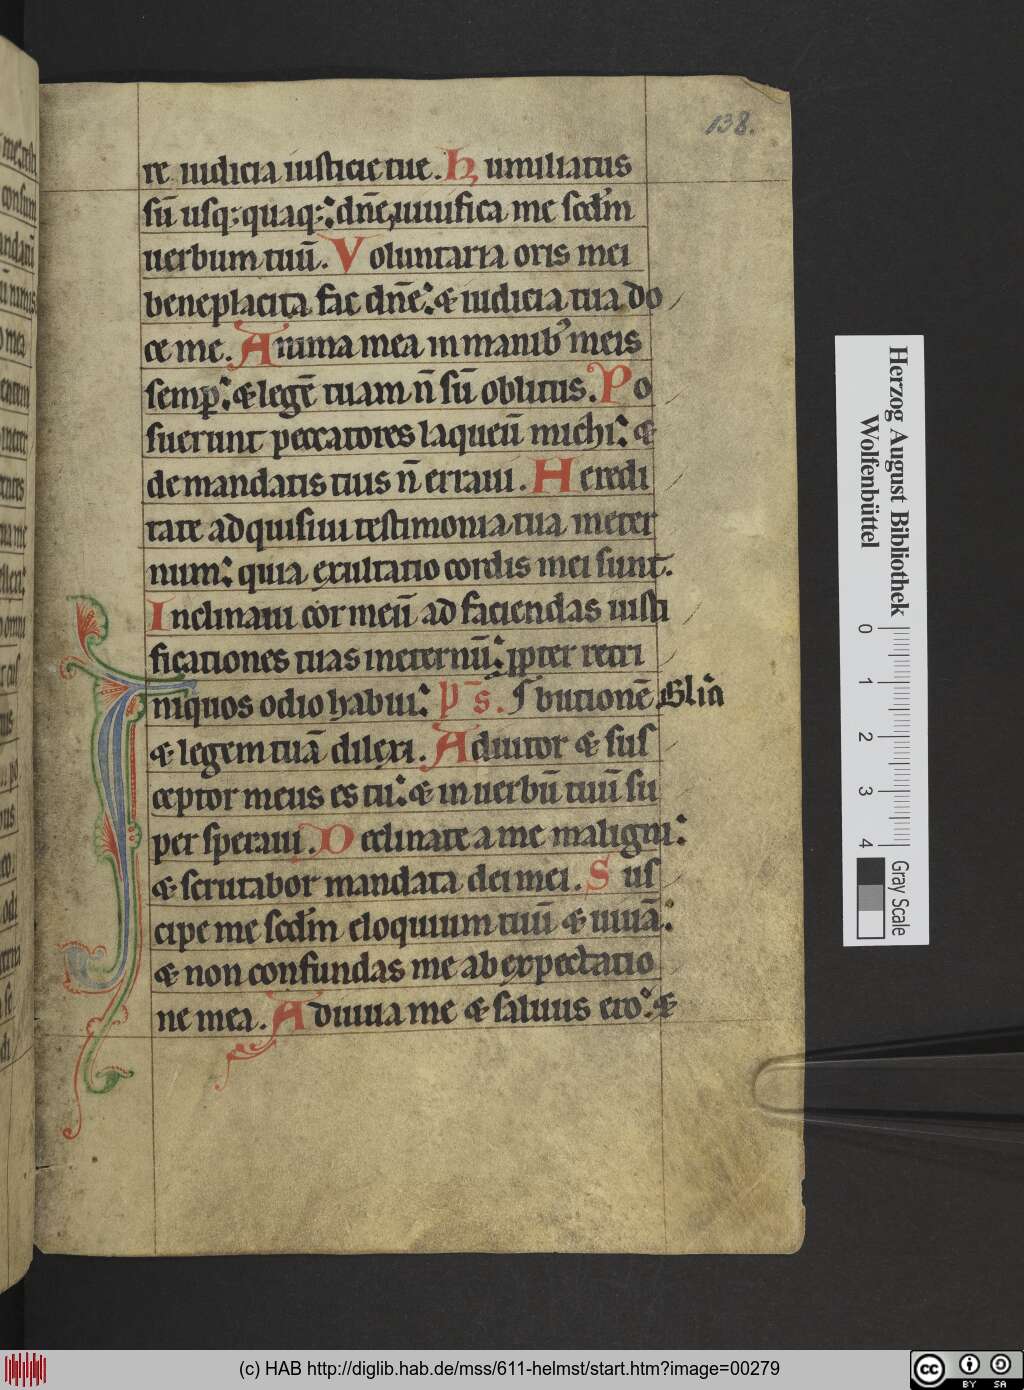 138.
re iudicia iusticie tue. Humiliatus
sū usq; quaq;: dn̄e, uiuifica me scd̄m
uerbum tuū. Voluntaria oris mei
beneplacita fac dn̄e: & iudicia tua do
ce me. Anima mea in manibꝰ meis
semp̱: & legē tuam n̄ sū oblitus. Po
suerunt peccatores laqueū michi: &
de mandatis tuis n̄ erraui. Heredi
tate adquisiui testimonia tua in eter
num: quia exultatio cordis mei sunt.
Inclinaui cor meū ad faciendas iusti
ficationes tuas in eternū: ꝓpter retri
butionē Glia
Iniquos odio habui: ps.
& legem tuā dilexi. Adiutor & sus
ceptor meus es tu: & in uerbū tuū su
per speraui. Declinate a me maligni:
& scrutabor mandata dei mei. Sus
cipe me scd̄m eloquium tuū & uiuā:
& non confundas me ab expectatio
ne mea. Adiuua me & saluus ero: &
Herzog August Bibliothek
Wolfenbüttel
0 1 2 3 4
Gray Scale
(c) HAB http://diglib.hab.de/mss/611-helmst/start.htm?image=00279
cc BY SA